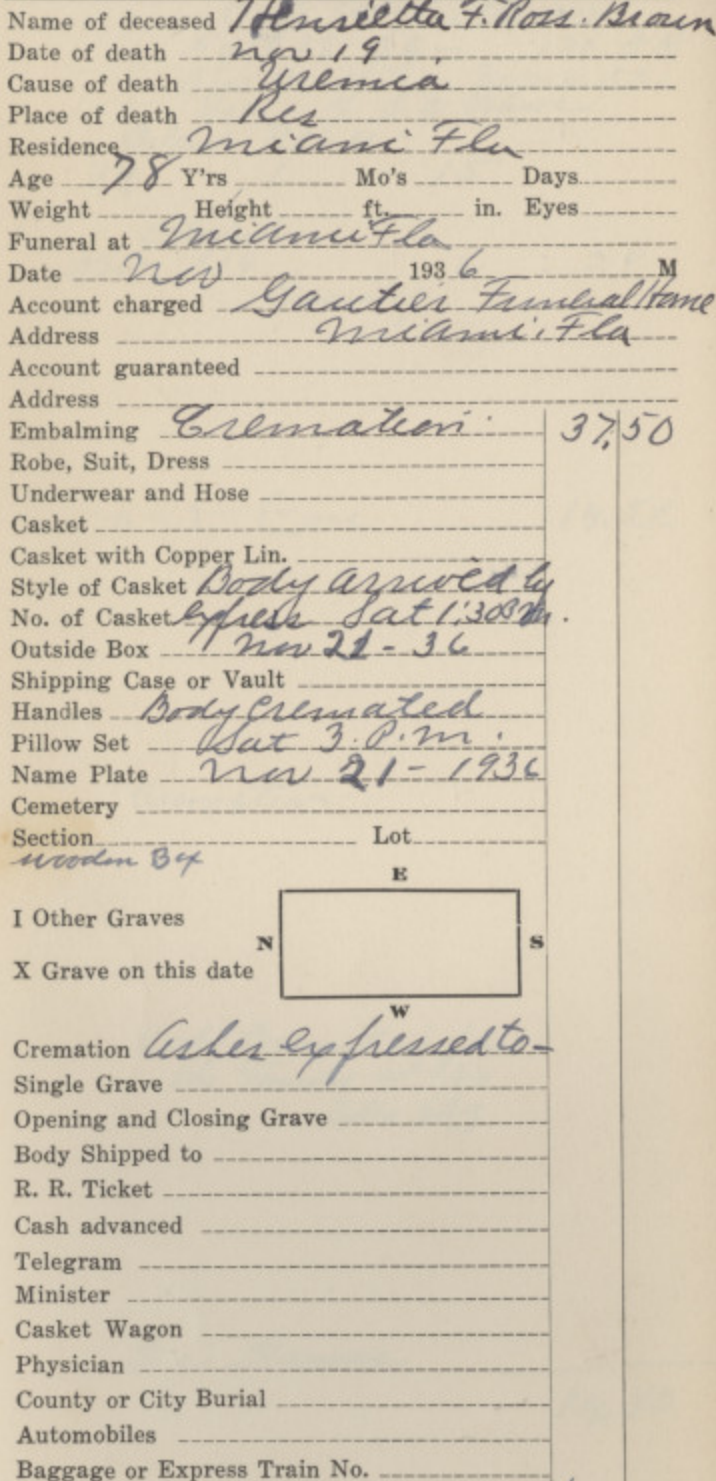 Name of deceased Henrietta F. Ross. Brown
Date of death Nov 19
Cause of death Uremia
Place of death Res
Residence Miami Fla
Age 78 Y'rs Mo's Days
Weight Height ft. in. Eyes
Funeral at Miami Fla
Date Nov 1936 M
Account charged Gautier Funeral Home
Address Miami. Fla
Account guaranteed
Address
Embalming Cremation 37.50
Robe, Suit, Dress
Underwear and Hose
Casket
Casket with Copper Lin.
Style of Casket Body arrived by
No. of Casket express Sat 1:30 P.M.
Outside Box Nov 21 - 36
Shipping Case or Vault
Handles Body Cremated
Pillow Set Sat 3. P.M.
Name Plate Nov 21 - 1936
Cemetery
Section Lot
wooden Box
E
I Other Graves
N S
X Grave on this date
W
Cremation Ashes expressed to -
Single Grave
Opening and Closing Grave
Body Shipped to
R. R. Ticket
Cash advanced
Telegram
Minister
Casket Wagon
Physician
County or City Burial
Automobiles
Baggage or Express Train No.